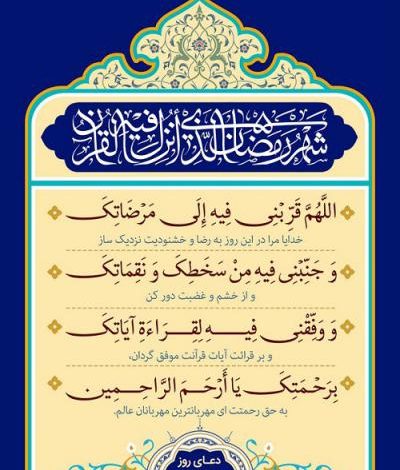 شَهْرُ رَمَضَانَ الَّذِي أُنْزِلَ فِيهِ الْقُرْآنُ
اللَّهُمَّ قَرِّبْنِی فِیهِ إِلَی مَرْضَاتِکَ
خدایا مرا در این روز به رضا و خشنودیت نزدیک ساز
وَ جَنِّبْنِی فِیهِ مِنْ سَخَطِکَ وَ نَقِمَاتِکَ
و از خشم و غضبت دور کن
وَ وَفِّقْنِی فِیهِ لِقِرَاءَةِ آیَاتِکَ
و بر قرائت آیات قرآنت موفق گردان،
بِرَحْمَتِکَ یَا أَرْحَمَ الرَّاحِمِینَ
به حق رحمتت ای مهربانترین مهربانان عالم.
دعای روز